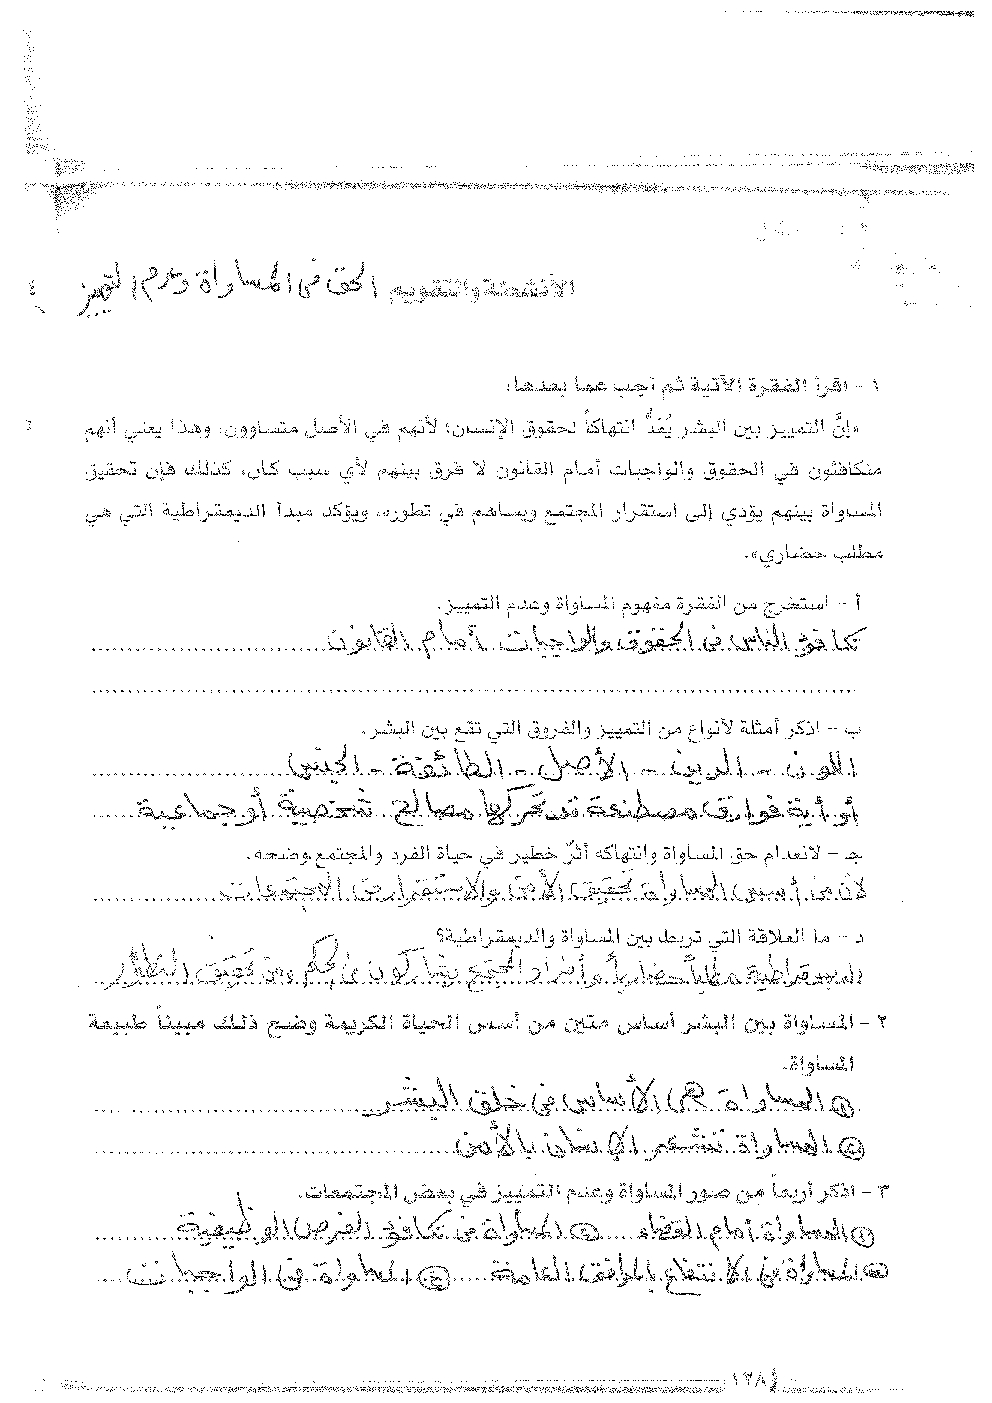 الأنشطة والتقويم الحق في المساواة وعدم التمييز
١ - اقرأ الفقرة الآتية ثم أجب عما بعدها:
«إنَّ التمييز بين البشر يُعَدُّ انتهاكاً لحقوق الإنسان؛ لأنهم في الأصل متساوون، وهذا يعني أنهم
متكافئون في الحقوق والواجبات أمام القانون لا فرق بينهم لأي سبب كان، كذلك فإن تحقيق
المساواة بينهم يؤدي إلى استقرار المجتمع ويساهم في تطوره، ويؤكد مبدأ الديمقراطية التي هي
مطلب حضاري».
أ - استخرج من الفقرة مفهوم المساواة وعدم التمييز.
تكافؤ الناس في الحقوق والواجبات أمام القانون
ب - اذكر أمثلة لأنواع من التمييز والفروق التي تقع بين البشر.
اللون - الدين - الأصل - الطائفة - الجنس
أو أية فوارق مصطنعة قد تحركها مصالح شخصية أو جماعية
جـ - لانعدام حق المساواة وانتهاكه أثرٌ خطير في حياة الفرد والمجتمع وضحه.
لأن من أسس المساواة تحقيق الأمن والاستقرار في المجتمعات
د - ما العلاقة التي تربط بين المساواة والديمقراطية؟
الديمقراطية مطلباً حضارياً وأفراد المجتمع يشاركون في الحكم ومن تحقيق
٢ - المساواة بين البشر أساس متين من أسس الحياة الكريمة وضح ذلك مبيناً طبيعة
المساواة.
① المساواة هي الأساس في خلق البشر
② المساواة تشعر الإنسان بالأمن
٣ - اذكر أربعاً من صور المساواة وعدم التمييز في بعض المجتمعات.
① المساواة أمام القضاء ② المساواة في تكافؤ الفرص الوظيفية
③ المساواة في الانتفاع بالمرافق العامة ④ المساواة في الواجبات
١٣٨